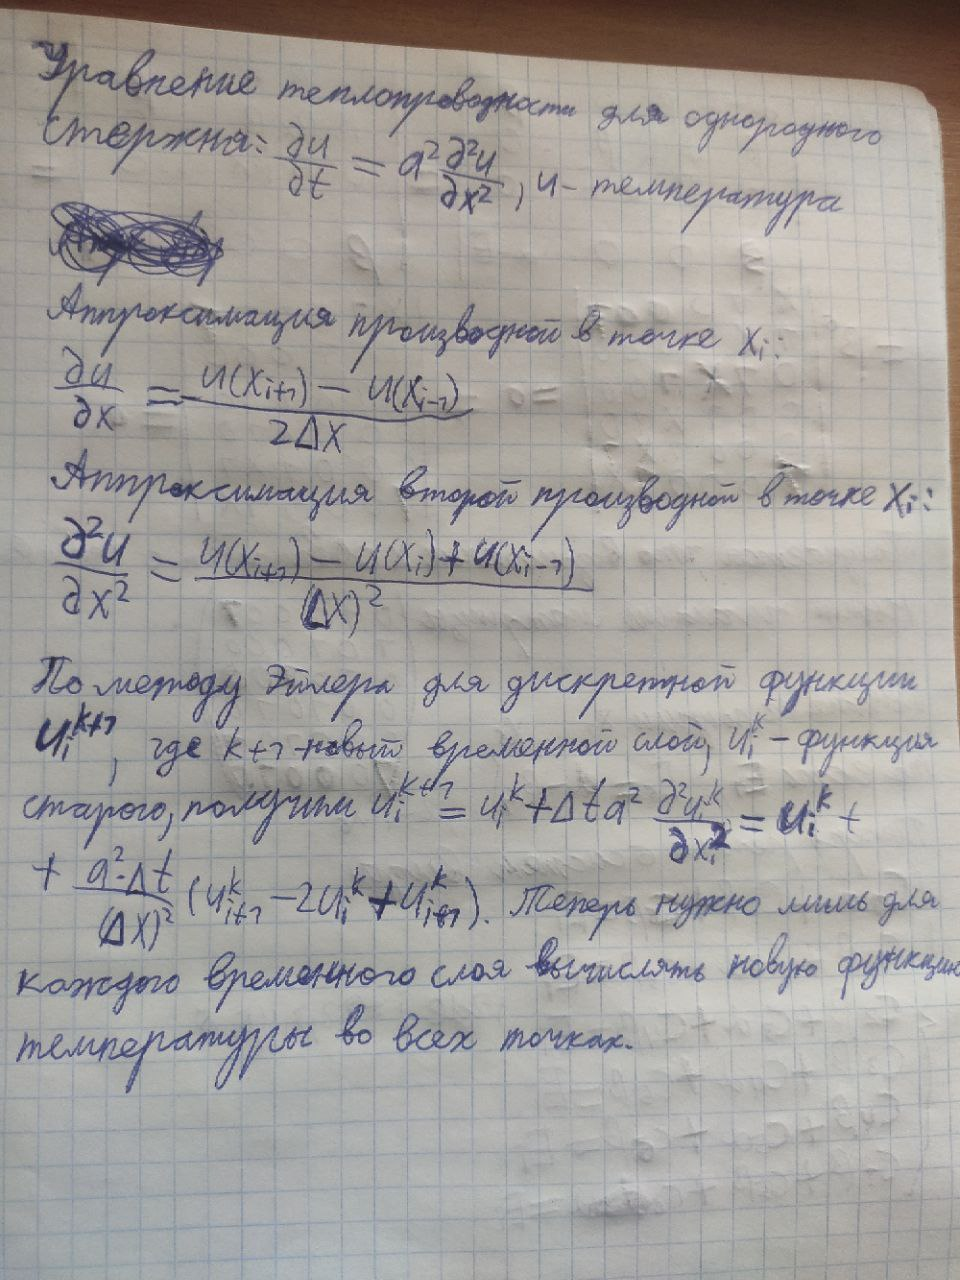 Уравнение теплопроводности для однородного
стержна: ∂u/∂t = a² ∂²u/∂x², u - температура
Аппроксимация производной в точке xᵢ:
∂u/∂x = (u(xᵢ₊₁) - u(xᵢ₋₁))/(2Δx)
Аппроксимация второй производной в точке xᵢ:
∂²u/∂x² = (u(xᵢ₊₁) - u(xᵢ) + u(xᵢ₋₁))/(Δx)²
По методу Эйлера для дискретной функции
uᵢᵏ⁺¹, где k+1 - новый временной слой, uᵢᵏ - функция
старого, получим uᵢᵏ⁺¹ = uᵢᵏ + Δt a² ∂²uᵢᵏ/∂xᵢ² = uᵢᵏ +
+ (a²·Δt)/(Δx)² (uᵢ₊₁ᵏ - 2uᵢᵏ + uᵢ₊₁ᵏ). Теперь нужно лишь для
каждого временного слоя вычислять новую функцию
температуры во всех точках.